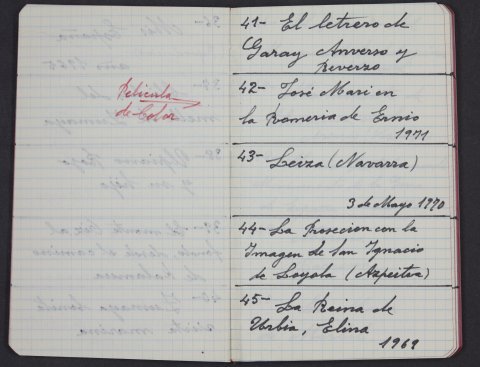 Película
de Color
41- El letrero de
Garay Anverso y
Reverzo
42- José Mari en
la Romeria de Ernio
1971
43- Leiza (Navarra)
3 de Mayo 1970
44- La Prosecion con la
Imagen de San Ignacio
de Loyola (Azpeitia)
45- La Reina de
Urbia, Elina
1969